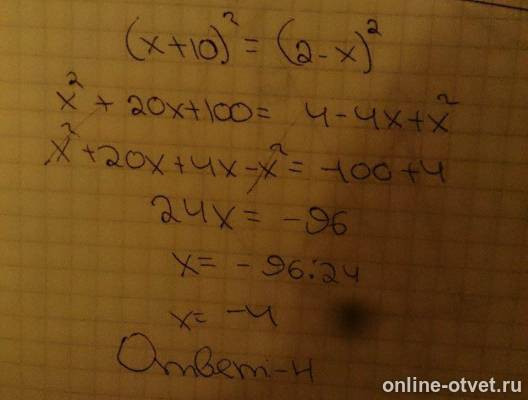 (x+10)² = (2-x)²
x² + 20x+100 = 4-4x+x²
x²+20x+4x-x² = -100+4
24x = -96
x = -96:24
x = -4
Ответ: -4
online-otvet.ru